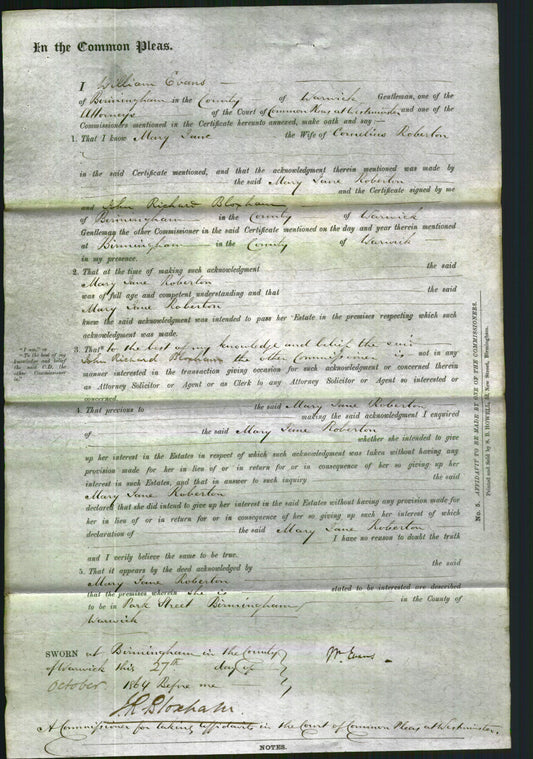 In the Common Pleas.
I William Evans
of Birmingham in the County of Warwick Gentleman, one of the
Attorneys of the Court of Common Pleas at Westminster and one of the
Commissioners mentioned in the Certificate hereunto annexed, make oath and say
1. That I know Mary Jane the Wife of Cornelius Roberton
in the said Certificate mentioned, and that the acknowledgment therein mentioned was made by
the said Mary Jane Roberton
and the Certificate signed by me
and John Richard Bloxham
of Birmingham in the County of Warwick
Gentleman the other Commissioner in the said Certificate mentioned on the day and year therein mentioned
at Birmingham in the County of Warwick
in my presence.
2. That at the time of making such acknowledgment the said
Mary Jane Roberton
was of full age and competent understanding and that the said
Mary Jane Roberton
knew the said acknowledgment was intended to pass her Estate in the premises respecting which such
acknowledgment was made.
"I am," or
"To the best of my
knowledge and belief
the said C.D. the
other Commissioner
is."
3. That to the best of my knowledge and belief the said
John Richard Bloxham the other Commissioner is not in any
manner interested in the transaction giving occasion for such acknowledgment or concerned therein
as Attorney Solicitor or Agent or as Clerk to any Attorney Solicitor or Agent so interested or
concerned.
4. That previous to the said Mary Jane Roberton
making the said acknowledgment I enquired
of the said Mary Jane Roberton
whether she intended to give
up her interest in the Estates in respect of which such acknowledgment was taken without having any
provision made for her in lieu of or in return for or in consequence of her so giving up her
interest in such Estates, and that in answer to such inquiry the said
Mary Jane Roberton
declared that she did intend to give up her interest in the said Estates without having any provision made for
her in lieu of or in return for or in consequence of her so giving up her interest of which
declaration of the said Mary Jane Roberton
I have no reason to doubt the truth
and I verily believe the same to be true.
5. That it appears by the deed acknowledged by the said
Mary Jane Roberton
that the premises wherein she is stated to be interested are described
to be in Park Street Birmingham in the County of
Warwick
SWORN at Birmingham in the County
of Warwick this 27th day of
October 1864 Before me
Wm Evans
J R Bloxham
A Commissioner for taking affidavits in the Court of Common Pleas at Westminster.
NOTES.
No. 5. AFFIDAVIT TO BE MADE BY ONE OF THE COMMISSIONERS.
Printed and Sold by S. B. HOWELL, New Street, Birmingham.